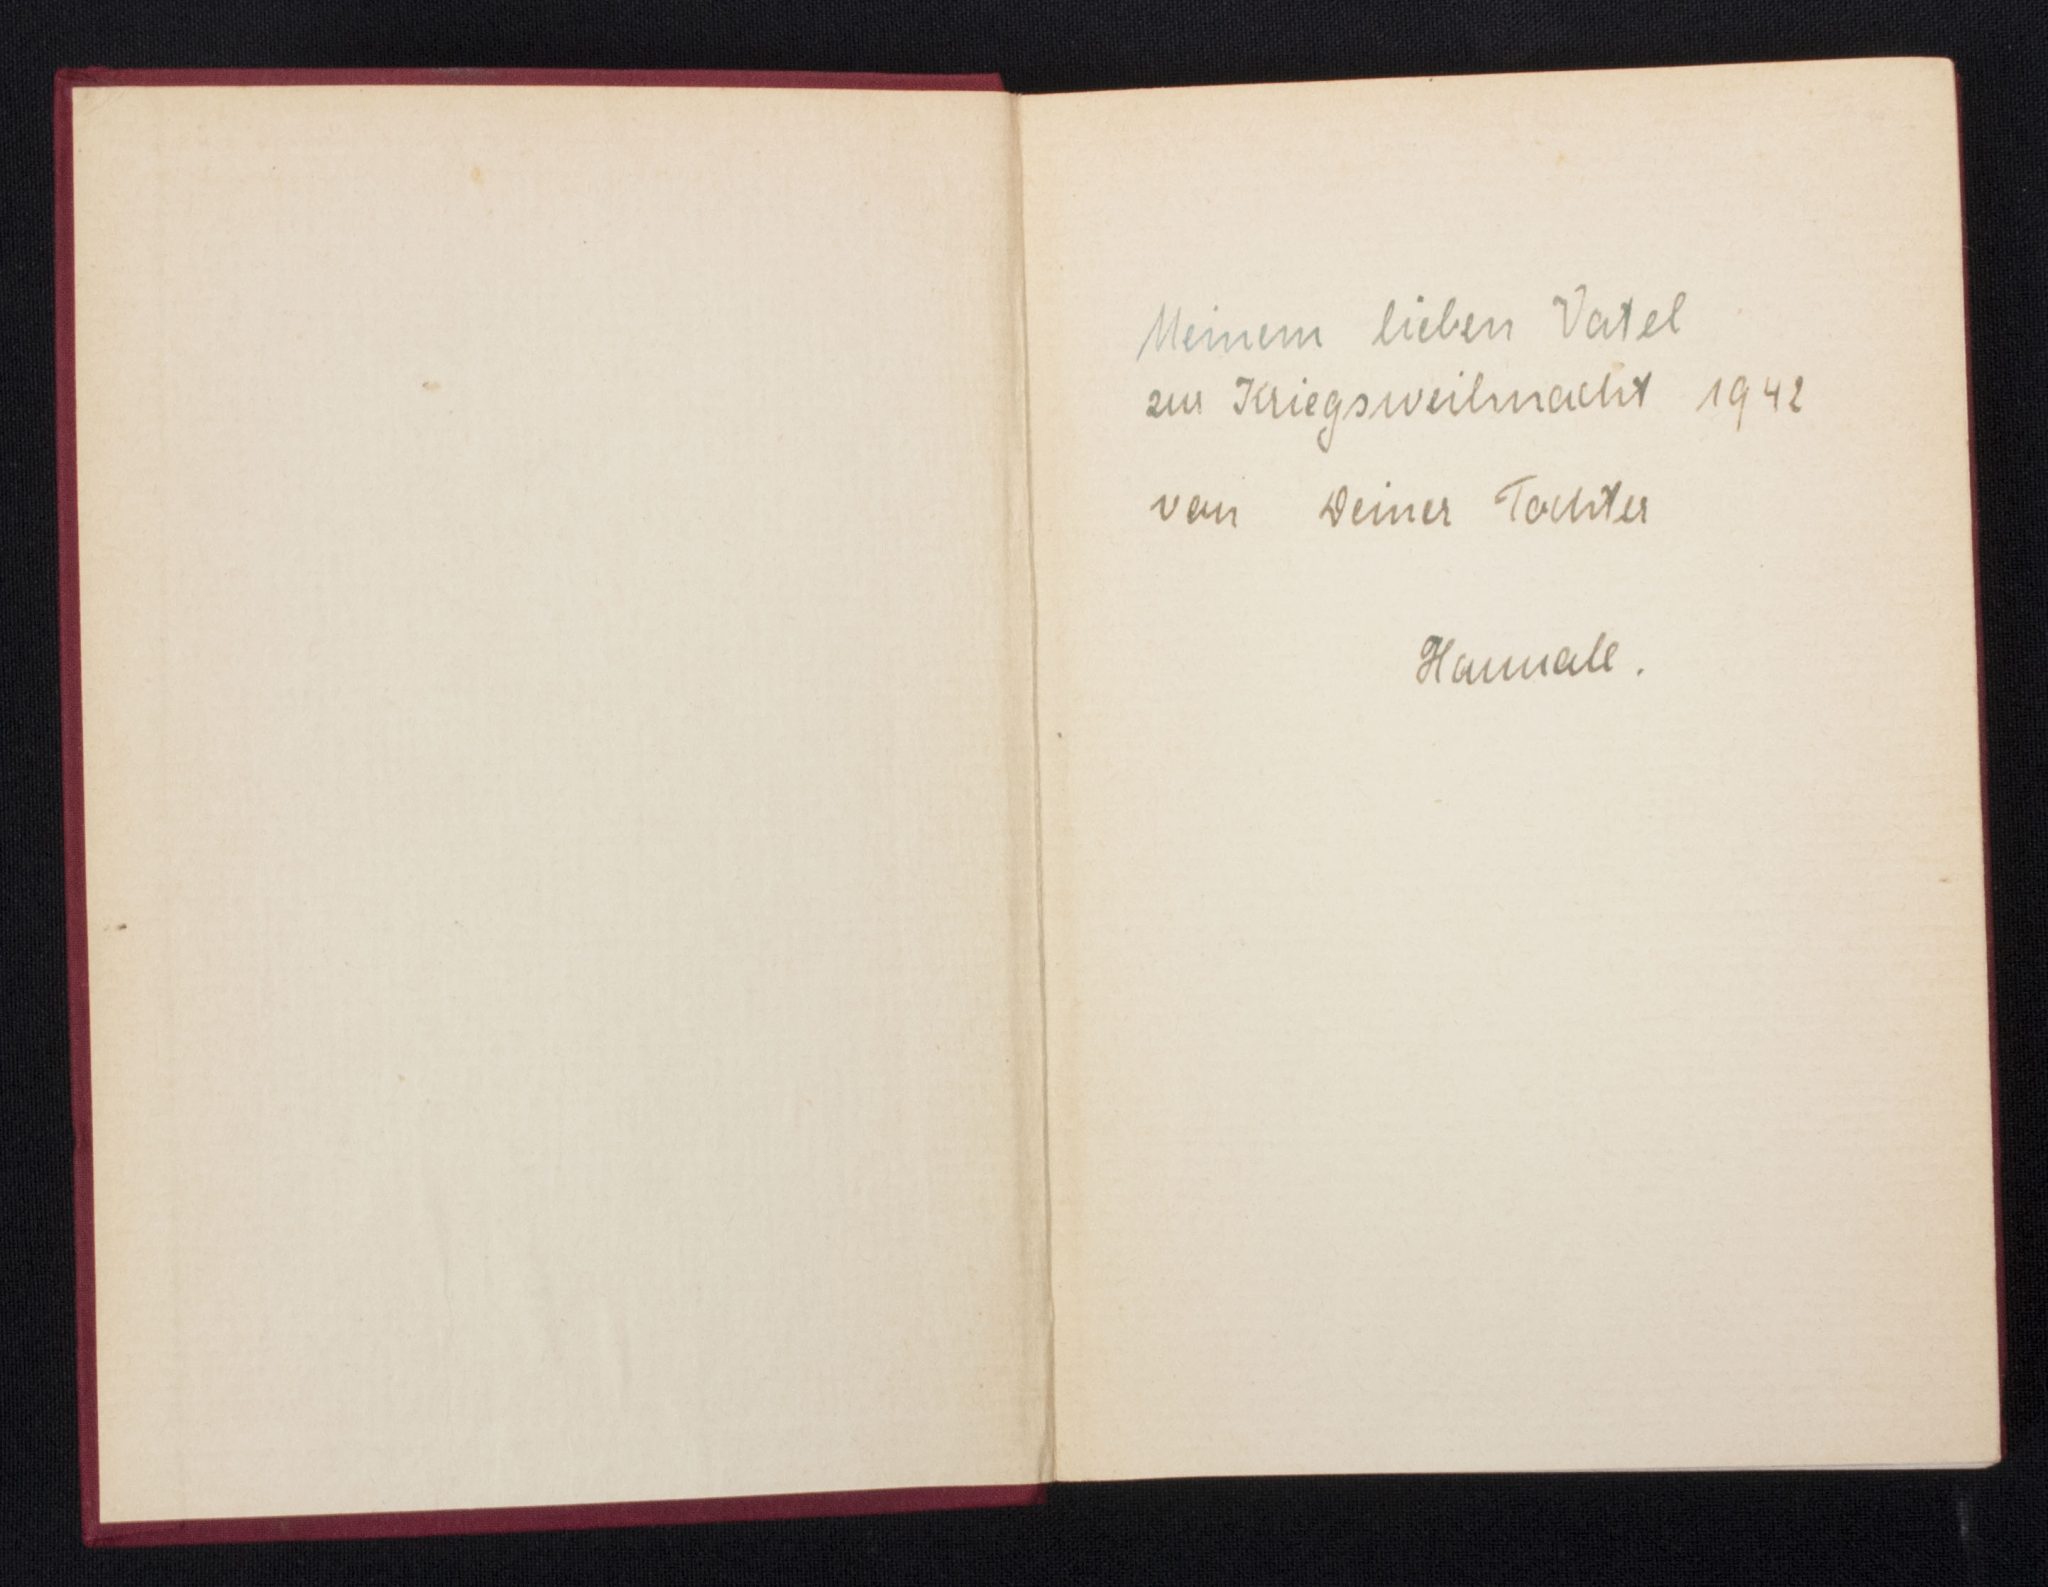 Meinem lieben Vatel
zur Kriegsweihnacht 1942
von Deiner Tochter
Hannale.